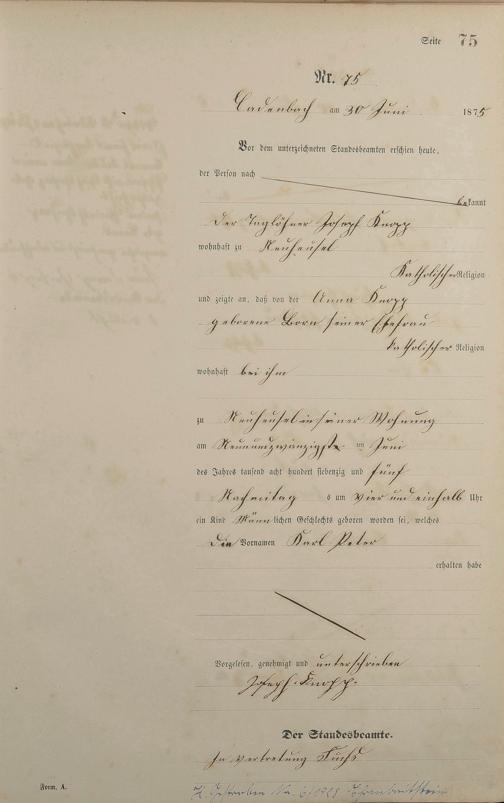 Seite 75
Nr. 75
Cadenbach am 30 Juni 1875
Vor dem unterzeichneten Standesbeamten erschien heute,
der Person nach
bekannt
der Taglöhner Joseph Knopp
wohnhaft zu Neuheusel
Katholischer Religion
und zeigte an, daß von der Anna Knopp
geborene Born seiner Ehefrau
katholischer Religion
wohnhaft bei ihm
zu Neuheusel in seiner Wohnung
am Neunundzwanzigsten Juni
des Jahres tausend acht hundert siebenzig und fünf
Nachmittag s um vier und einhalb Uhr
ein Kind Männlichen Geschlechts geboren worden sei, welches
die Vornamen Karl Peter
erhalten habe
Vorgelesen, genehmigt und unterschrieben
Joseph Knopp
Der Standesbeamte.
In Vertretung Fuchs
Form. A.